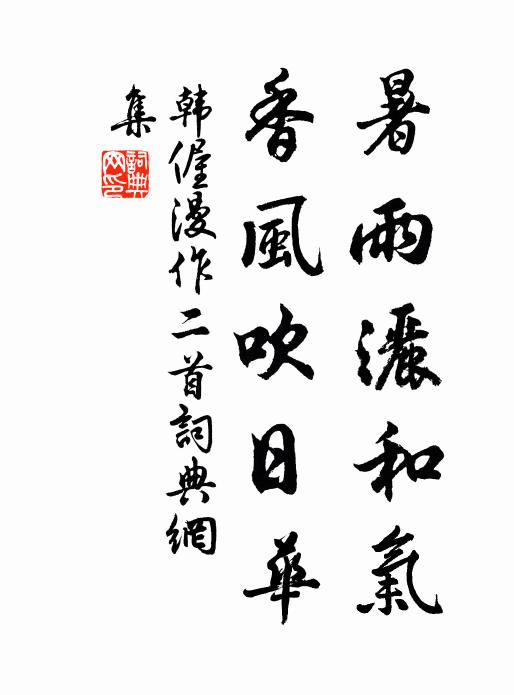 暑雨灑和氣
香風吹日華
韓偓漫作二首詞典網
集
詞典
网印